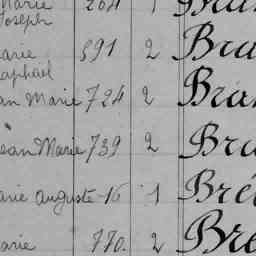 Marie 264 1
Joseph
Marie 591 2 Bru
Raphaël
Jean Marie 724 2 Bra
Jean Marie 739 2 Bru
Marie Auguste 16 1 Bré
Marie 770. 2 Bre